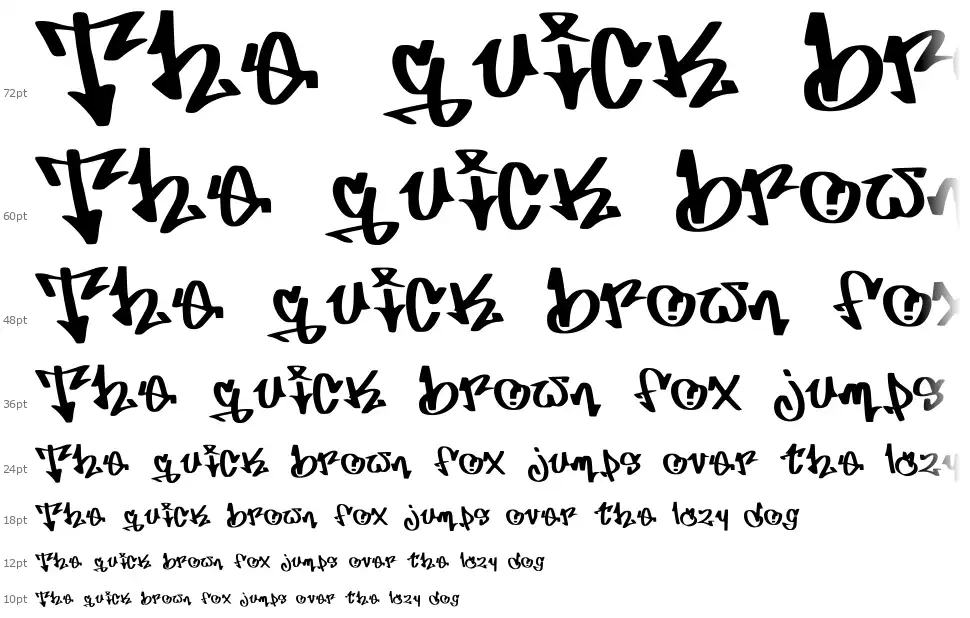 72pt The quick br
60pt The quick brown
48pt The quick brown fox
36pt The quick brown fox jumps
24pt The quick brown fox jumps over the lazy
18pt The quick brown fox jumps over the lazy dog
12pt The quick brown fox jumps over the lazy dog
10pt The quick brown fox jumps over the lazy dog